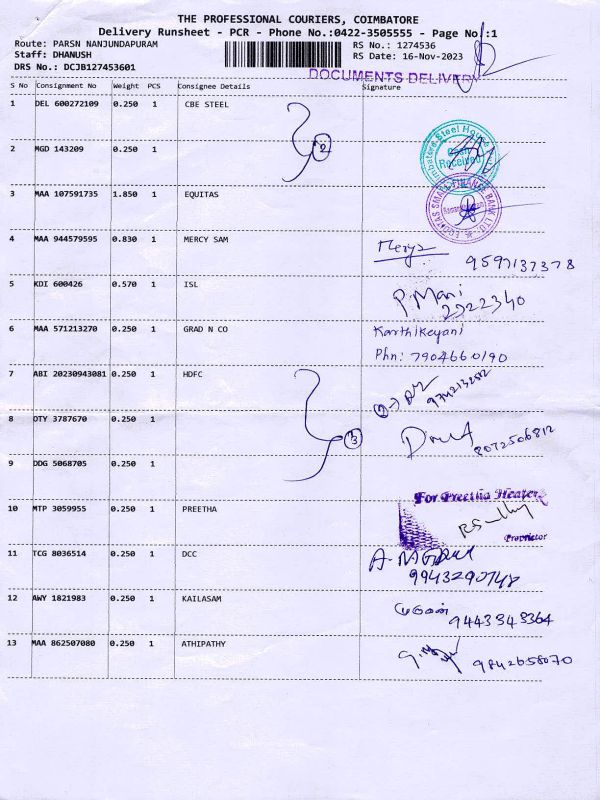 THE PROFESSIONAL COURIERS, COIMBATORE
Delivery Runsheet - PCR - Phone No.:0422-3505555 - Page No.:1
Route: PARSN NANJUNDAPURAM RS No.: 1274536
Staff: DHANUSH RS Date: 16-Nov-2023
DRS No.: DCJB127453601
DOCUMENTS DELIVERY
S No Consignment No Weight PCS Consignee Details Signature
1 DEL 600272109 0.250 1 CBE STEEL
2 MGD 143209 0.250 1 2
3 MAA 107591735 1.850 1 EQUITAS
4 MAA 944579595 0.830 1 MERCY SAM
9597137378
5 KDI 600426 0.570 1 ISL P. Mani
2322340
6 MAA 571213270 0.250 1 GRAD N CO Karthikeyani
Phn: 7904660190
7 ABI 20230943081 0.250 1 HDFC
8 OTY 3787670 0.250 1 3 8072506812
9 DDG 5068705 0.250 1
For Preetha Heaters
10 MTP 3059955 0.250 1 PREETHA
Proprietor
11 TCG 8036514 0.250 1 DCC
9943290748
12 AWY 1821983 0.250 1 KAILASAM முருகன்
9443548364
13 MAA 862507080 0.250 1 ATHIPATHY 9842658070